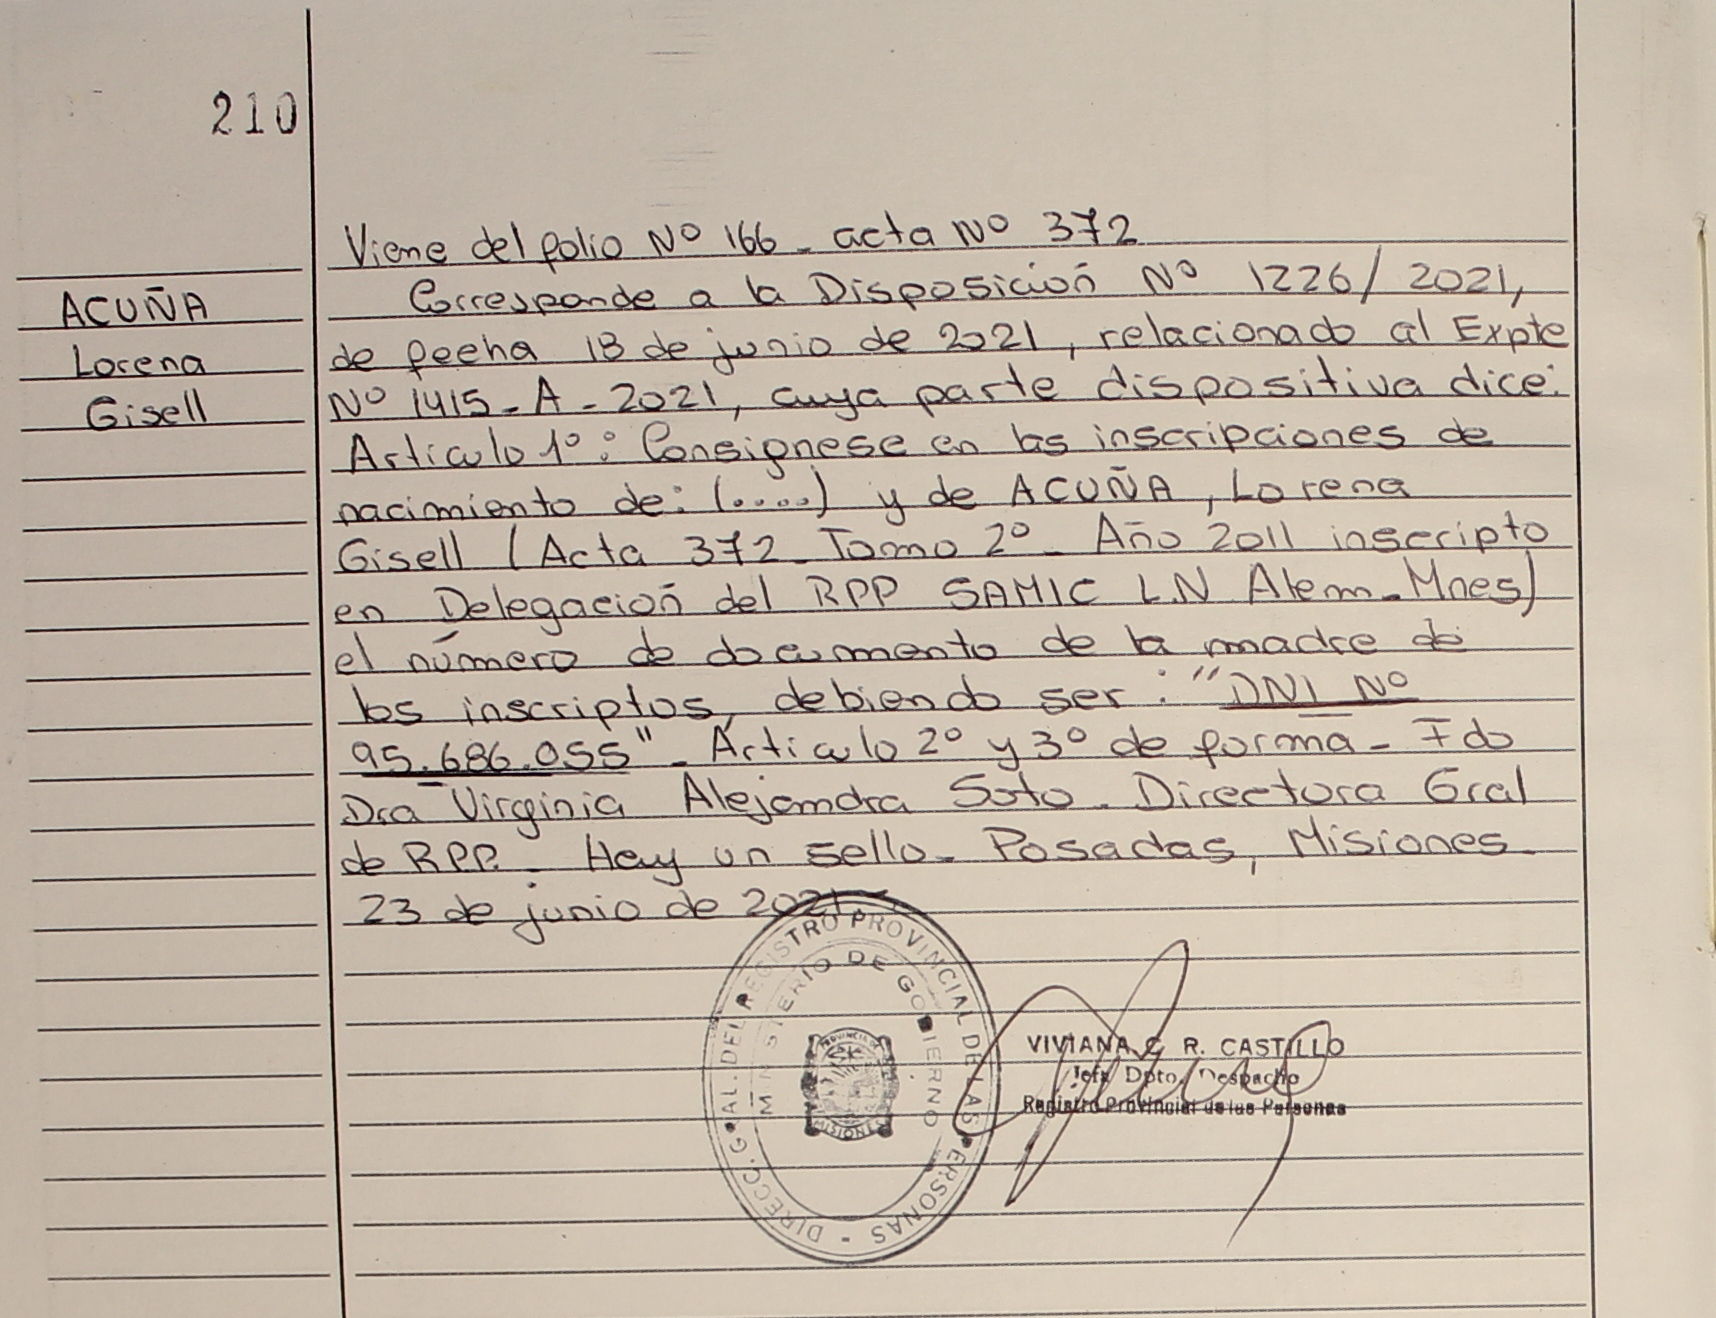 210
ACUÑA
Lorena
Gisell
Viene del folio Nº 166 - acta Nº 372
Corresponde a la Disposición Nº 1226/2021,
de fecha 18 de junio de 2021, relacionado al Expte
Nº 1415-A-2021, cuya parte dispositiva dice:
Artículo 1º: Consignese en las inscripciones de
nacimiento de: (....) y de ACUÑA, Lorena
Gisell (Acta 372 Tomo 2º Año 2011 inscripto
en Delegación del RPP SAMIC L.N Alem - Mnes)
el número de documento de la madre de
los inscriptos, debiendo ser: "DNI Nº
95.686.055" - Artículo 2º y 3º de forma - Fdo
Dra Virginia Alejandra Soto. Directora Gral
de RPP. Hay un sello - Posadas, Misiones.
23 de junio de 2021
DIRECC. GRAL. DEL REGISTRO PROVINCIAL DE LAS PERSONAS -
MINISTERIO DE GOBIERNO
PROVINCIA DE
MISIONES
VIVIANA C. R. CASTILLO
Jefa Dpto. Despacho
Registro Provincial de las Personas